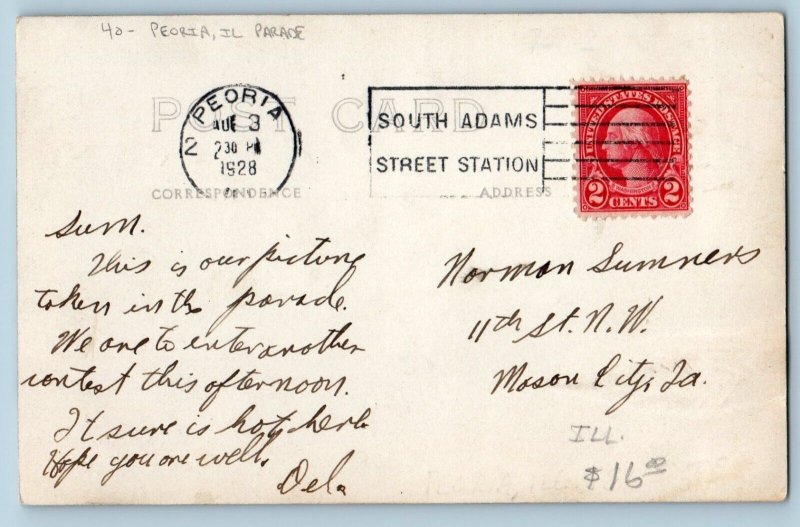 40- PEORIA, IL PARADE
POST CARD
PEORIA
AUG 3
2 30 PM
1928
SOUTH ADAMS
STREET STATION
UNITED STATES POSTAGE
WASHINGTON
2 CENTS 2
CORRESPONDENCE
ADDRESS
Sum.
This is our picture
taken in the parade.
We are to enter another
contest this afternoon.
It sure is hot here.
Hope you are well.
Del.
Norman Sumners
11th St. N.W.
Mason City, Ia.
ILL.
$16.00